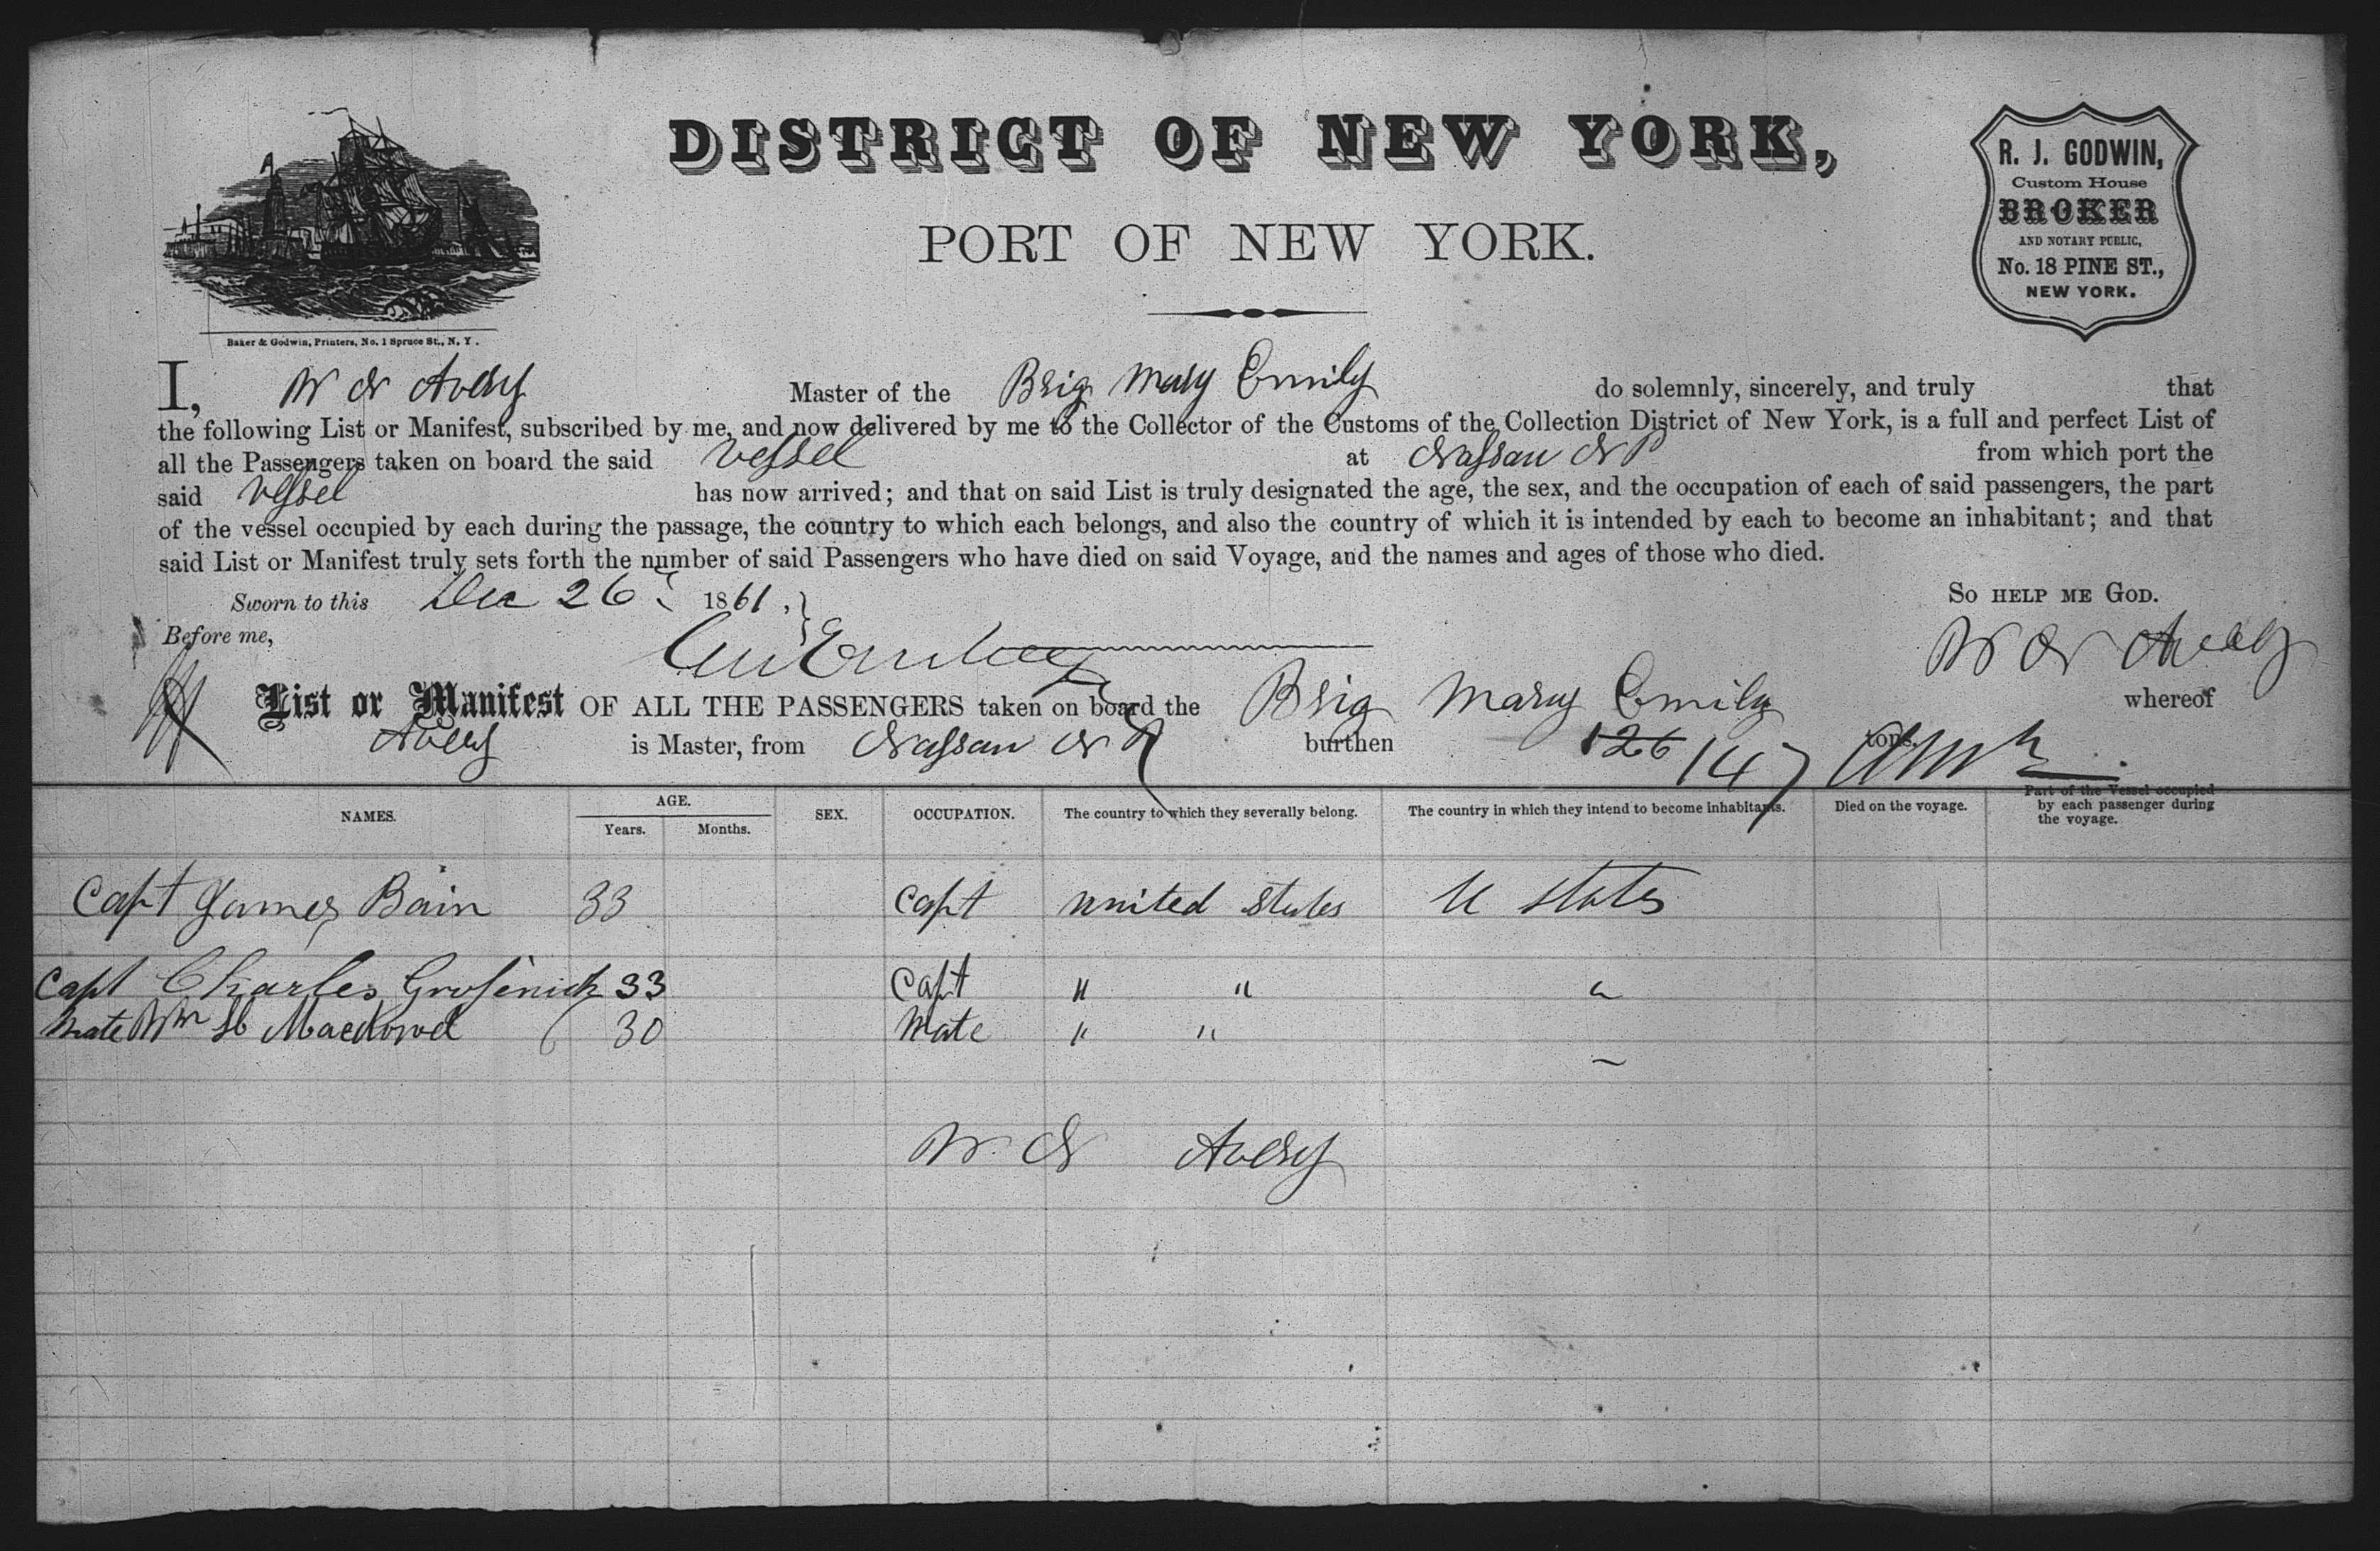 DISTRICT OF NEW YORK,
PORT OF NEW YORK.
R. J. GODWIN,
Custom House
BROKER
AND NOTARY PUBLIC,
No. 18 PINE ST.,
NEW YORK.
Baker & Godwin, Printers, No. 1 Spruce St., N. Y.
I, W N Avery Master of the Brig Mary Emily do solemnly, sincerely, and truly that
the following List or Manifest, subscribed by me, and now delivered by me to the Collector of the Customs of the Collection District of New York, is a full and perfect List of
all the Passengers taken on board the said vessel at Nassau N P from which port the
said vessel has now arrived; and that on said List is truly designated the age, the sex, and the occupation of each of said passengers, the part
of the vessel occupied by each during the passage, the country to which each belongs, and also the country of which it is intended by each to become an inhabitant; and that
said List or Manifest truly sets forth the number of said Passengers who have died on said Voyage, and the names and ages of those who died.
Sworn to this Dec 26 1861, SO HELP ME GOD.
Before me, W N Avery
List or Manifest OF ALL THE PASSENGERS taken on board the Brig Mary Emily whereof
Avery is Master, from Nassau N P burthen 126 147 tons.
NAMES. AGE. Years. Months. SEX. OCCUPATION. The country to which they severally belong. The country in which they intend to become inhabitants. Died on the voyage. Part of the Vessel occupied by each passenger during the voyage.
Capt James Bain 33 Capt United States U States
Capt Charles Grosenick 33 Capt " " "
Mate Wm H 30 Mate " "
W. N Avery